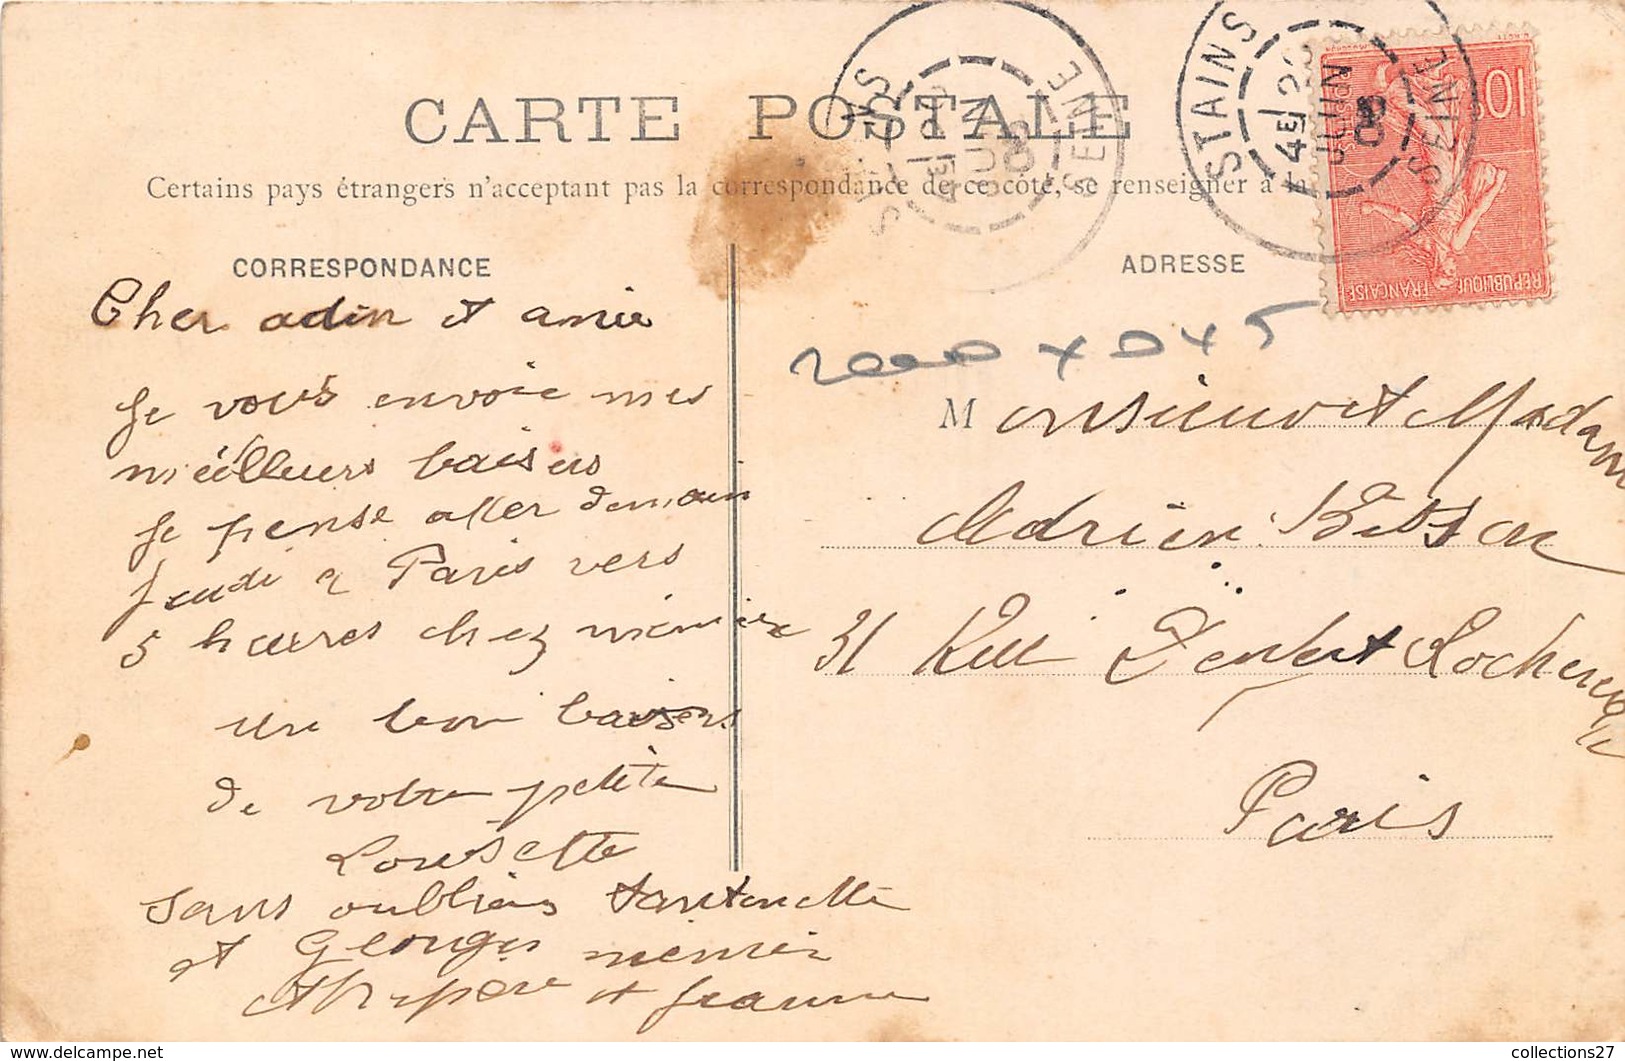 CARTE POSTALE
Certains pays étrangers n'acceptant pas la correspondance de ce côté, se renseigner à
CORRESPONDANCE
Cher adin et amie
Je vous envoie mes
meilleurs baisers
Je pense aller demain
jeudi a Paris vers
5 heures chez mémère
un bon baisers
de votre petite
Louisette
sans oublier tantonette
et Georges mémèr
et pépère et Jeanne
ADRESSE
Monsieur et Madam
Adrien Besson
31 Rue Denfert Rochereau
Paris
STAINS
SEINE
4E
JUIN
08
STAINS
SEINE
4E
JUIN
08
10
REPUBLIQUE
FRANÇAISE
collections27